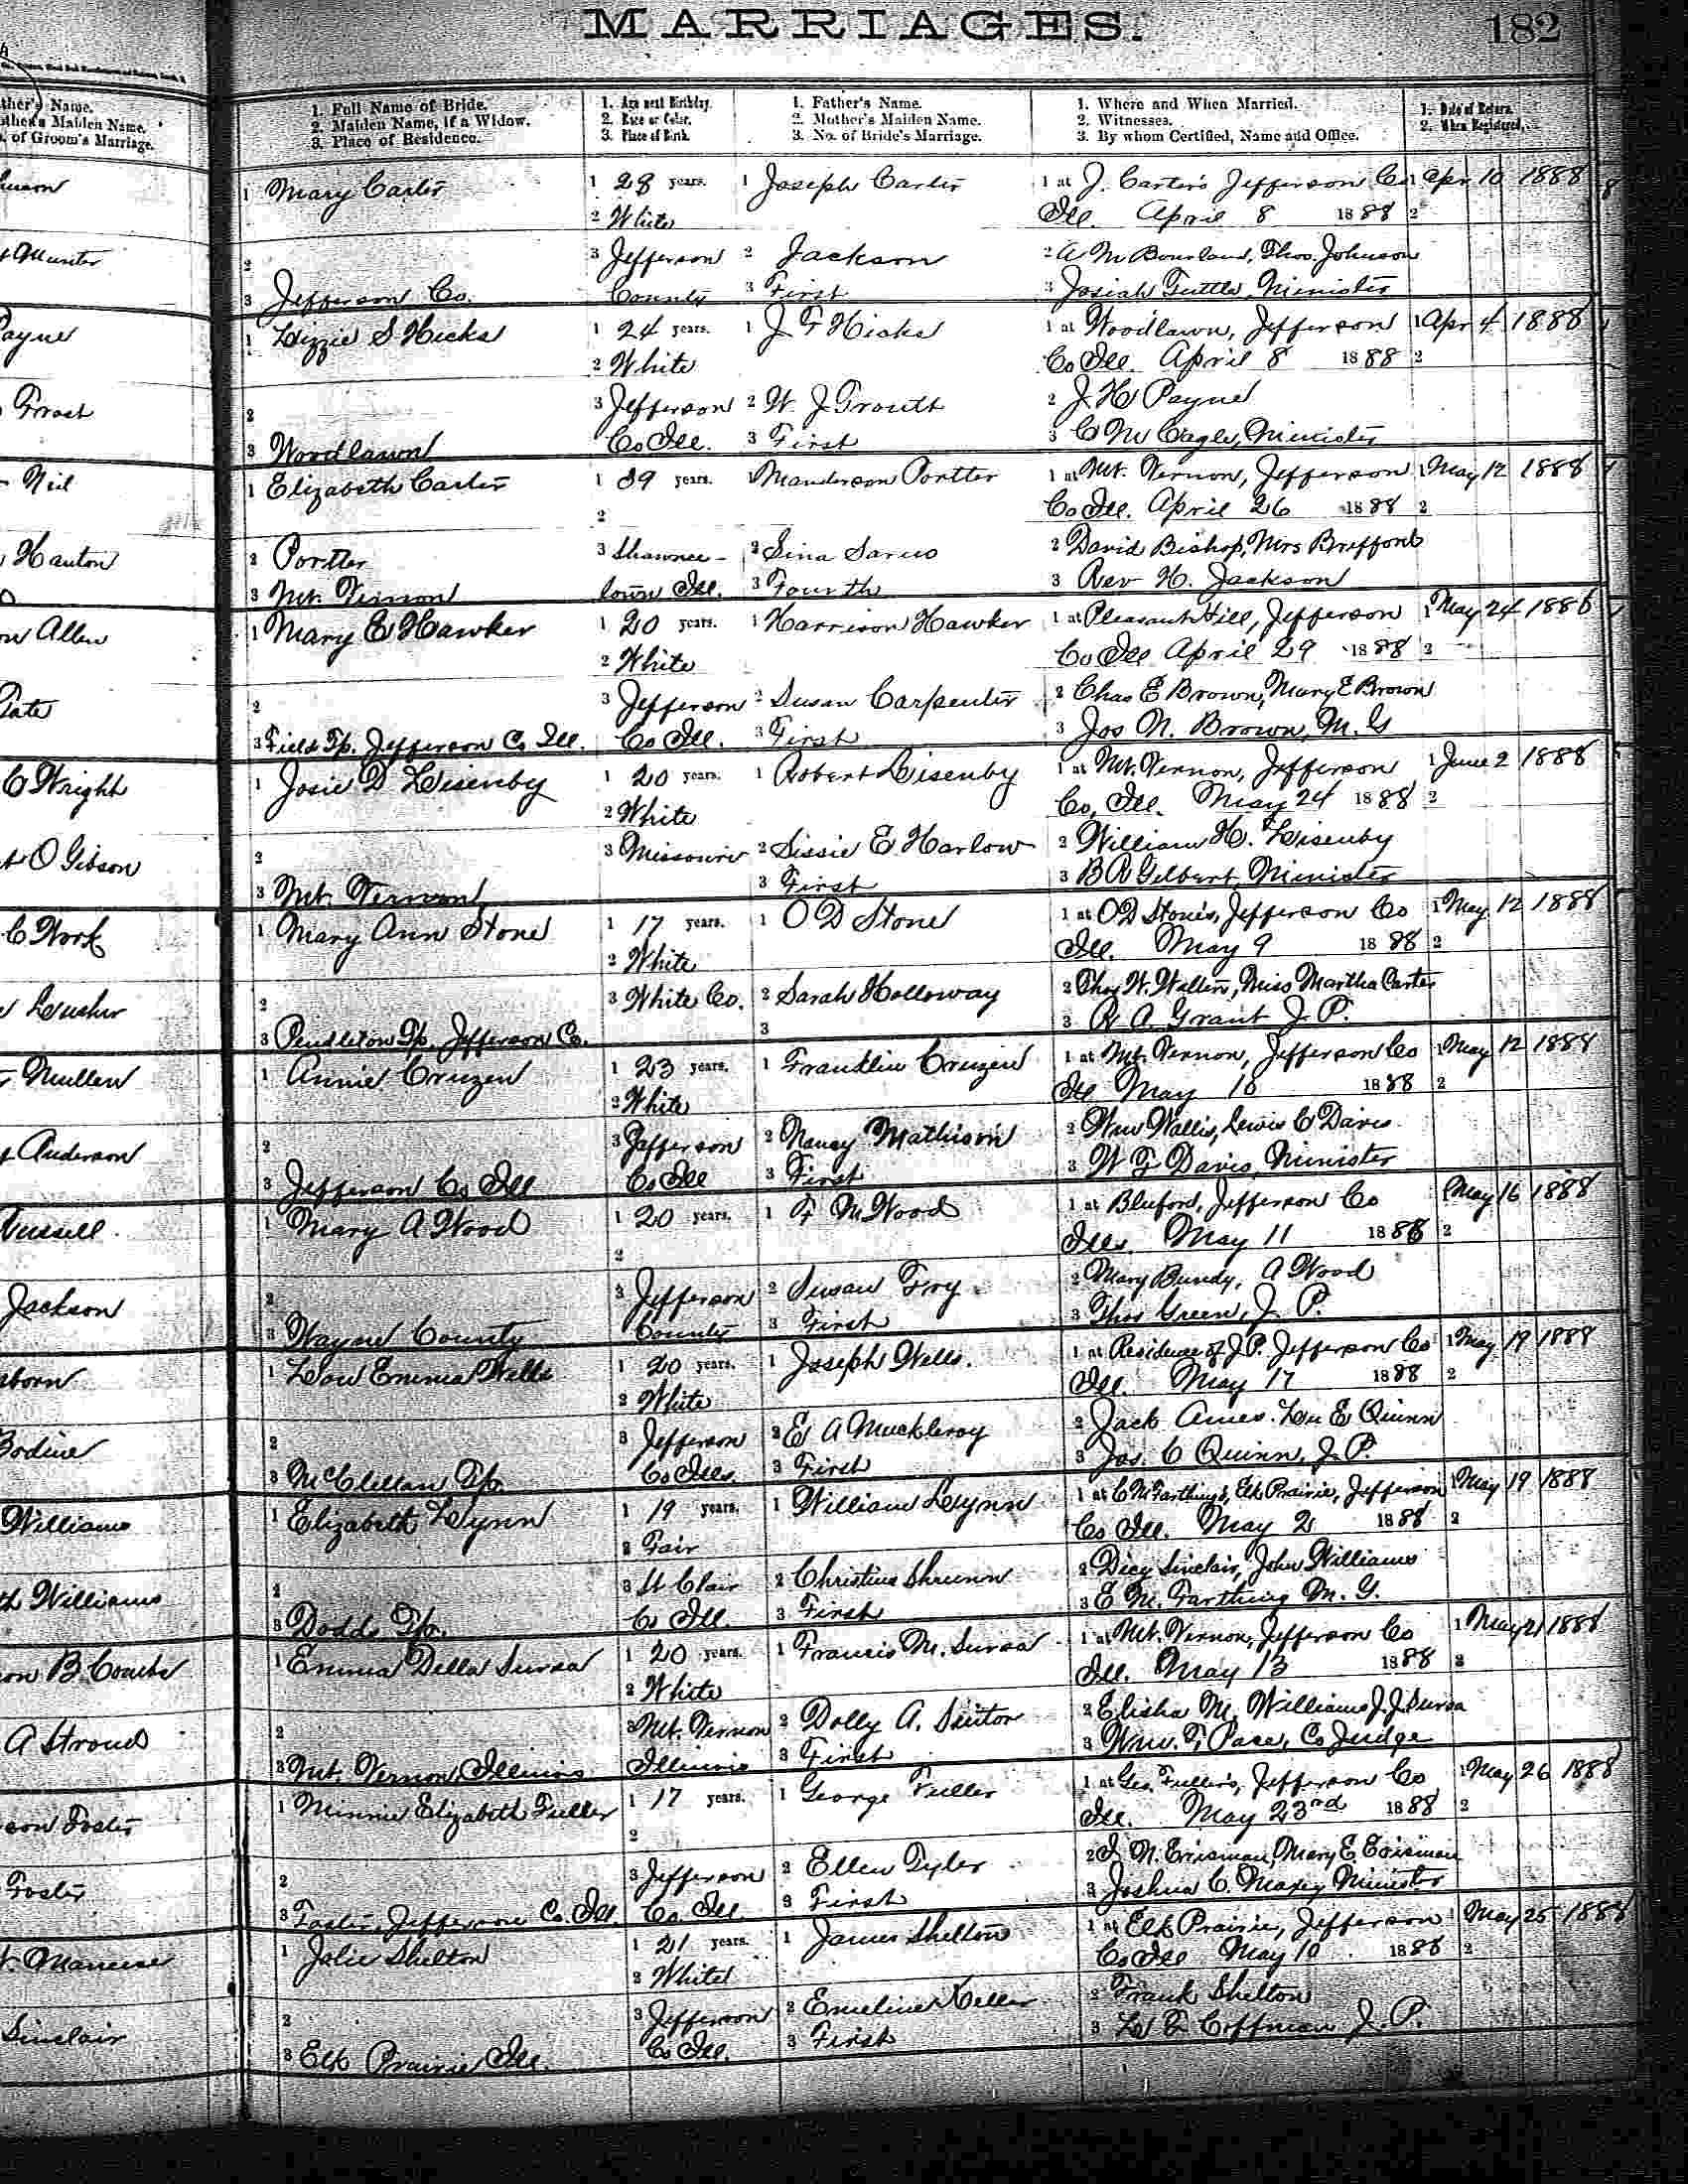 MARRIAGES.
182
ther's Name.
other's Maiden Name.
of Groom's Marriage.
1. Full Name of Bride.
2. Maiden Name, if a Widow.
3. Place of Residence.
1. Age next Birthday.
2. Race or Color.
3. Place of Birth.
1. Father's Name.
2. Mother's Maiden Name.
3. No. of Bride's Marriage.
1. Where and When Married.
2. Witnesses.
3. By whom Certified, Name and Office.
1. Date of Return.
2. When Registered.
1 Mary Carter 1 28 years. 1 Joseph Carter 1 at J. Carter's Jefferson Co 1 Apr 10 1888
2 White Ill. April 8 1888 2
Hunter 2 3 Jefferson 2 Jackson 2 A M Bourland, Thos. Johnson
3 Jefferson Co. County 3 First 3 Josiah Tuttle, Minister
Payne 1 Lizzie S Hicks 1 24 years. 1 J F Hicks 1 at Woodlawn, Jefferson 1 Apr 4 1888
2 White Co Ill. April 8 1888 2
Forest 2 3 Jefferson 2 W. J Troutt 2 J. H Payne
3 Woodlawn Co Ill. 3 First 3 C M Cagle, Minister
Neil 1 Elizabeth Carter 1 39 years. 1 Manderson Portter 1 at Mt. Vernon, Jefferson 1 May 12 1888
2 Co Ill. April 26 1888 2
Hanton 2 Portter 3 Shawnee- 2 Sina 2 David Bishop, Mrs
3 Mt. Vernon town Ill. 3 Fourth 3 Rev H. Jackson
Allen 1 Mary E Hawker 1 20 years. 1 Harrison Hawker 1 at Pleasant Hill, Jefferson 1 May 24 1888
2 White Co Ill April 29 1888 2
Tate 2 3 Jefferson 2 Susan Carpenter 2 Chas E Brown, Mary E Brown
3 Field Tp. Jefferson Co Ill. Co Ill. 3 First 3 Jos N. Brown, M. G
C Wright 1 Josie D Lisenby 1 20 years. 1 Robert Lisenby 1 at Mt. Vernon, Jefferson 1 June 2 1888
2 White Co, Ill. May 24 1888 2
O Gibson 2 3 Missouri 2 Sissie E. Harlow 2 William H. Lisenby
3 Mt. Vernon 3 First 3 B R Gilbert, Minister
C Work 1 Mary Ann Stone 1 17 years. 1 O D Stone 1 at O D Stone's, Jefferson Co 1 May 12 1888
2 White Ill. May 9 1888 2
Lusher 2 3 White Co. 2 Sarah Holloway 2 Thos W. Wallen, Miss Martha Carter
3 Pendleton Tp. Jefferson Co. 3 3 R A Grant J. P.
Mullen 1 Annie Cruzen 1 23 years. 1 Franklin Cruzen 1 at Mt. Vernon, Jefferson Co 1 May 12 1888
2 White Ill May 10 1888 2
Anderson 2 3 Jefferson 2 Nancy Mathison 2 Wm Wallis, Lewis C Davis
3 Jefferson Co Ill Co Ill 3 First 3 W F Davis, Minister
Russell 1 Mary A Wood 1 20 years. 1 F M Wood 1 at Bluford, Jefferson Co 1 May 16 1888
2 Ills. May 11 1888 2
Jackson 2 3 Jefferson 2 Susan Fry 2 Mary Bundy, A Wood
3 Wayne County County 3 First 3 Thos Green, J. P.
1 Lou Emma Wells 1 20 years. 1 Joseph Wells. 1 at Residence of J. P. Jefferson Co 1 May 19 1888
2 White Ill. May 17 1888 2
Bodine 2 3 Jefferson 2 E A Muckleroy 2 Jack Ames. Lu E Quinn
3 McClellan Tp. Co Ills. 3 First 3 Jas. C Quinn, J. P.
Williams 1 Elizabeth Lynn 1 19 years. 1 William Lynn 1 at E M Farthing's, Elk Prairie, Jefferson 1 May 19 1888
2 Fair Co Ill. May 2 1888 2
Williams 2 3 St Clair 2 Christina Shrunn 2 Dicy Sinclair, John Williams
3 Dodds Tp. Co Ill. 3 First 3 E M. Farthing M. G.
B. Coombs 1 Emma Della Sursa 1 20 years. 1 Francis M. Sursa 1 at Mt. Vernon, Jefferson Co 1 May 21 1888
2 White Ill. May 13 1888 2
A Stroud 2 3 Mt. Vernon 2 Dolly A. 2 Elisha M. Williams J. J. Sursa
3 Mt. Vernon, Illinois Illinois 3 First 3 Wm. T. Pace, Co Judge
Foster 1 Minnie Elizabeth Fuller 1 17 years. 1 George Fuller 1 at Geo. Fuller's, Jefferson Co 1 May 26 1888
2 Ill. May 23rd 1888 2
Foster 2 3 Jefferson 2 Ellen Tyler 2 J. N. Erisman, Mary E Erisman
3 Foster, Jefferson Co. Ill. Co. Ill 3 First 3 Joshua C. Maxey Minister
1 Julie Shelton 1 21 years. 1 James Shelton 1 at Elk Prairie, Jefferson 1 May 25 1888
2 White Co Ill May 10 1888 2
Sinclair 2 3 Jefferson 2 Emeline Keller 2 Frank Shelton
3 Elk Prairie Ill. Co Ill. 3 First 3 L F Coffman J. P.